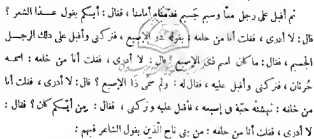 ثم أقبل على رجل منّا وسيم جسيم قدمناه أمامنا ، فقال : أيكم يقول هذا الشعر ؟
قال : لا أدرى ، فقلت أنا من خلفه : يقوله ذو الإصبع ، فتركنى وأقبل على ذلك الرجل
الجسيم ، فقال : ما كان اسم ذى الإصبع ؟ قال : لا أدرى ، فقلت أنا من خلفه : اسمه
حُرْثان ، فتركنى وأقبل عليه ، فقال له : ولم سمى ذا الإصبع ؟ قال : لا أدرى ، فقلت أنا
من خلفه : نهشته حيّة فى إصبعه ، فأقبل عليه وتركنى ، فقال : من أيّكم كان ؟ فقال :
لا أدرى ، فقلت أنا من خلفه : من بنى ناج الذين يقول الشاعر فيهم :